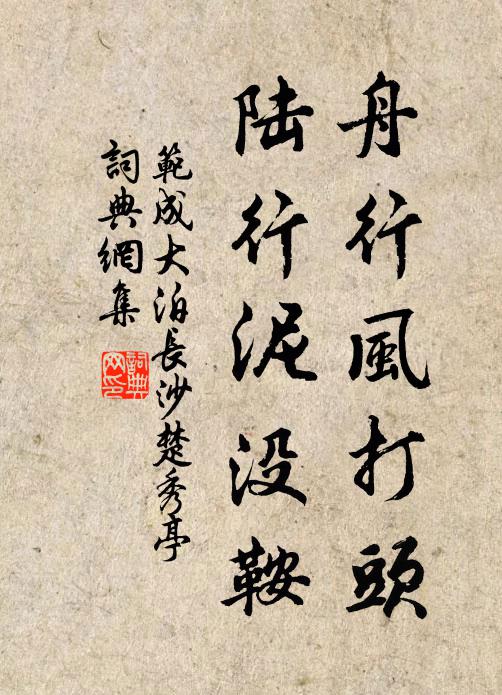 舟行風打頭
陆行泥没鞍
範成大泊長沙楚秀亭
詞典網集
詞典
网印